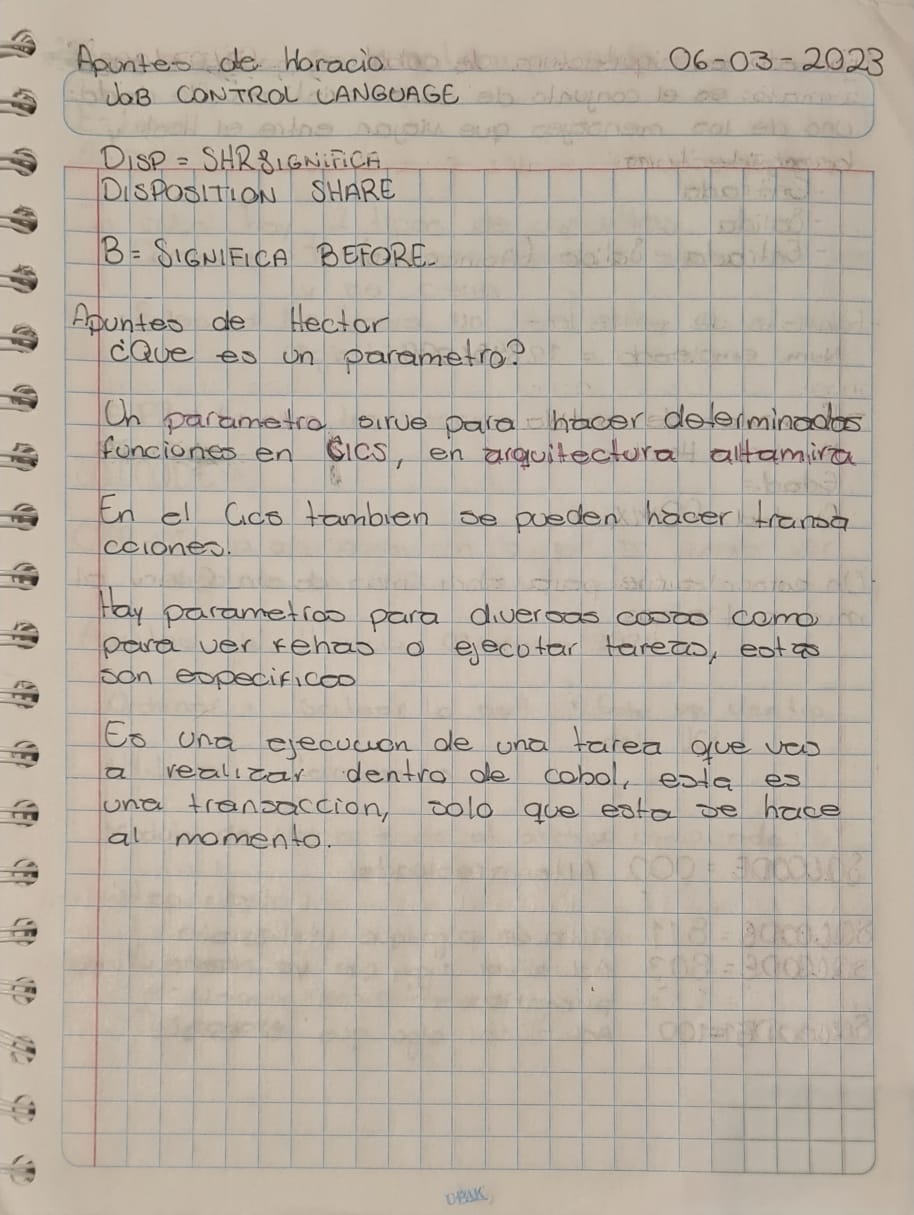 Apuntes de Horacio 06-03-2023
JOB CONTROL LANGUAGE
DISP = SHR SIGNIFICA
DISPOSITION SHARE
B = SIGNIFICA BEFORE.
Apuntes de Hector
¿Que es un parametro?
Un parametro sirve para hacer determinados
funciones en CICS, en arquitectura altamira
En el Cics tambien se pueden hacer transa
cciones.
Hay parametros para diversas cosas como
para ver fehas o ejecutar tareas, estas
son especificos
Es una ejecucion de una tarea que vas
a realizar dentro de cobol, esta es
una transaccion, solo que esta se hace
al momento.